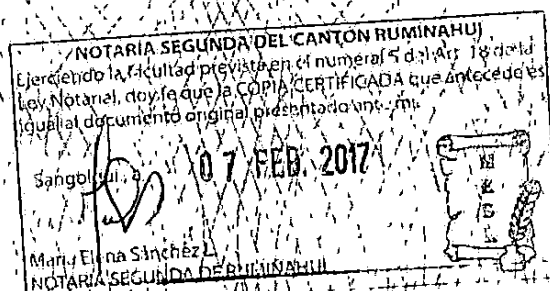 NOTARÍA SEGUNDA DEL CANTÓN RUMIÑAHUI
Ejerciendo la facultad prevista en el numeral 5 del Art. 18 de la
Ley Notarial, doy fe que la COPIA CERTIFICADA que antecede es
igual al documento original presentado ante mí.
Sangolquí, a 07 FEB. 2017
María Elena Sánchez L.
NOTARIA SEGUNDA DE RUMIÑAHUI